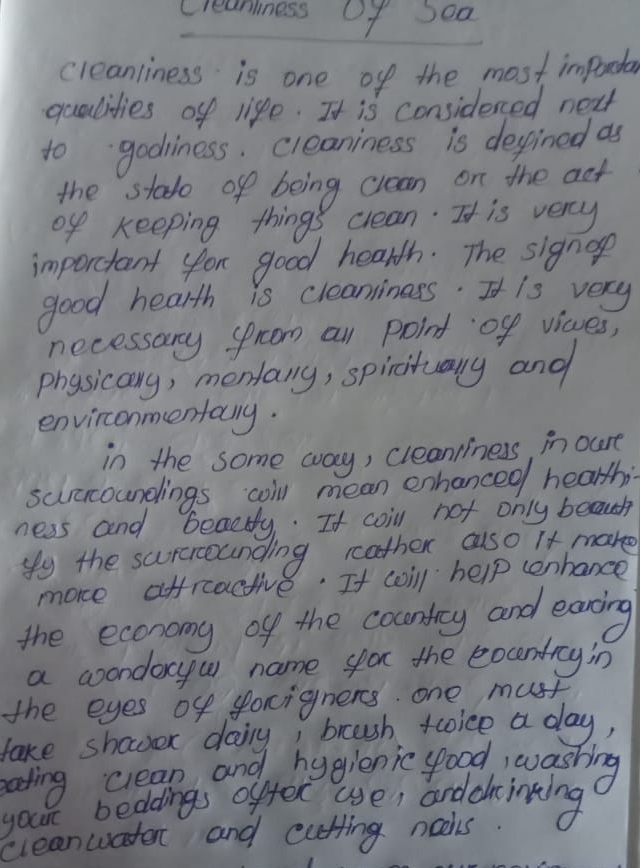 Cleanliness Of Sea
cleanliness is one of the most importan
qualities of life. It is considered next
to godliness. cleanliness is defined as
the state of being clean or the act
of keeping things clean. It is very
important for good health. The sign of
good health is cleanliness. It is very
necessary from all point of views,
physically, mentally, spiritually and
environmentally.
in the some way, cleanliness in our
surroundings will mean enhanced healthi-
ness and beauty. It will not only beauti
fy the surrounding rather also it make
more attractive. It will help enhance
the economy of the country and earing
a wonderful name for the country in
the eyes of forigners. one must
take shower daily, brush twice a day,
eating clean and hygienic food, washing
your beddings after use, and drinking
clean water and cutting nails.